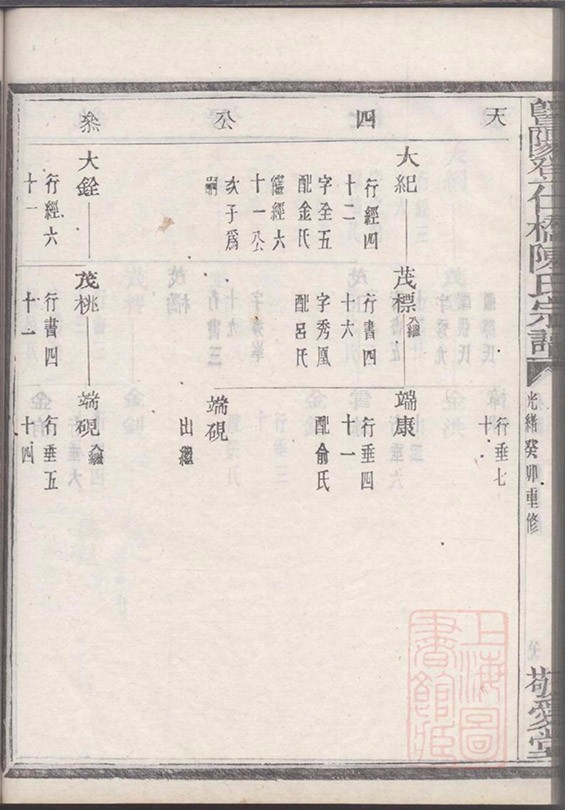 暨陽登仕橋陳氏宗譜
光緒癸卯重修
敬愛堂
天 四 公 叅
行垂七
十
大紀
行經四
十二
字全五
配金氏
繼經六
十一公
次子為
嗣
茂標入繼
行書四
十六
字秀凰
配呂氏
端康
行垂四
十一
配俞氏
端硯
出繼
大銓
行經六
十一
茂桃
行書四
十二
端硯入繼
行垂五
十四
上海圖
書館藏